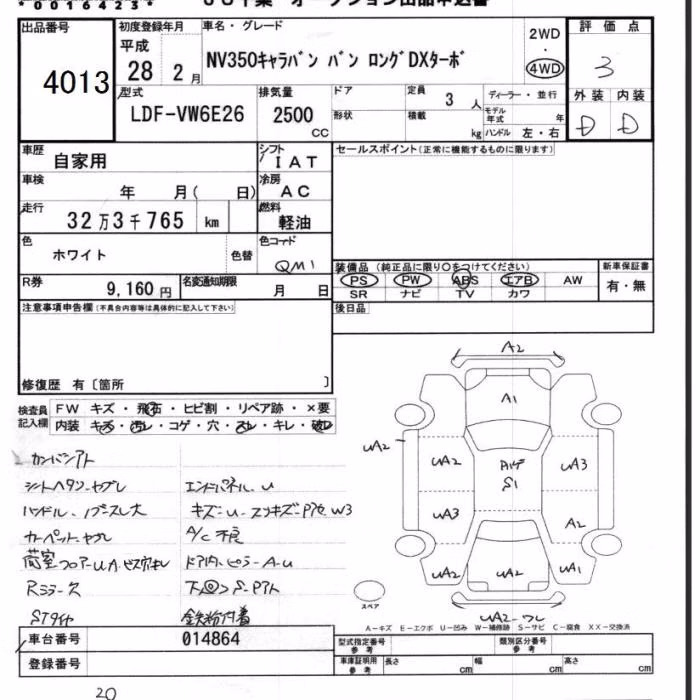 * 0 0 1 6 4 2 3 *
出品番号
4013
初度登録年月
平成
28 2 月
車名・グレード
NV350キャラバン バン ロングDXターボ
2WD
・
4WD
評価点
3
外装 内装
D D
型式
LDF-VW6E26
排気量
2500
CC
ドア
形状
定員
3 人
積載
kg
ディーラー・並行
モデル年式 年
ハンドル 左・右
車歴
自家用
シフト
IAT
車検
年 月( 日)
冷房
AC
走行
32万3千765 km
燃料
軽油
色
ホワイト
色替
色コード
QM1
R券
9,160 円
名変通知期限
月 日
セールスポイント(正常に機能するものに限ります)
装備品 (純正品に限り○をつけてください)
PS PW ABS エアB AW
SR ナビ TV カワ
新車保証書
有・無
後日品
注意事項申告欄(不具合内容等は具体的に記入して下さい)
修復歴 有〔箇所 〕
検査員記入欄
FW キズ・飛石・ヒビ割・リペア跡・×要
内装 キズ・汚レ・コゲ・穴・スレ・キレ・破レ
カンバンアト
シートヘタリ・ヤブレ
エンドパネル、U
ハンドル、
キズ・U・スリキズ・Pアセ W3
カーペットヤブレ
A/C不良
荷室フロアーUA、ビス穴キレ
ドア内・ピラーA・U
Rミラー欠
下回S・Pアト
STタイヤ
鉄粉付着
A2
A1
UA2
UA2
UA3
Aハゲ
S1
UA3
A2
UA2
UA2
UA1
UA2-ワレ
スペア
A-キズ E-エクボ U-凹み W-補修跡 S-サビ C-腐食 XX-交換済
車台番号
014864
登録番号
型式指定番号
参考
類別区分番号
参考
車庫証明用
参考
長さ cm
幅 cm
高さ cm
20